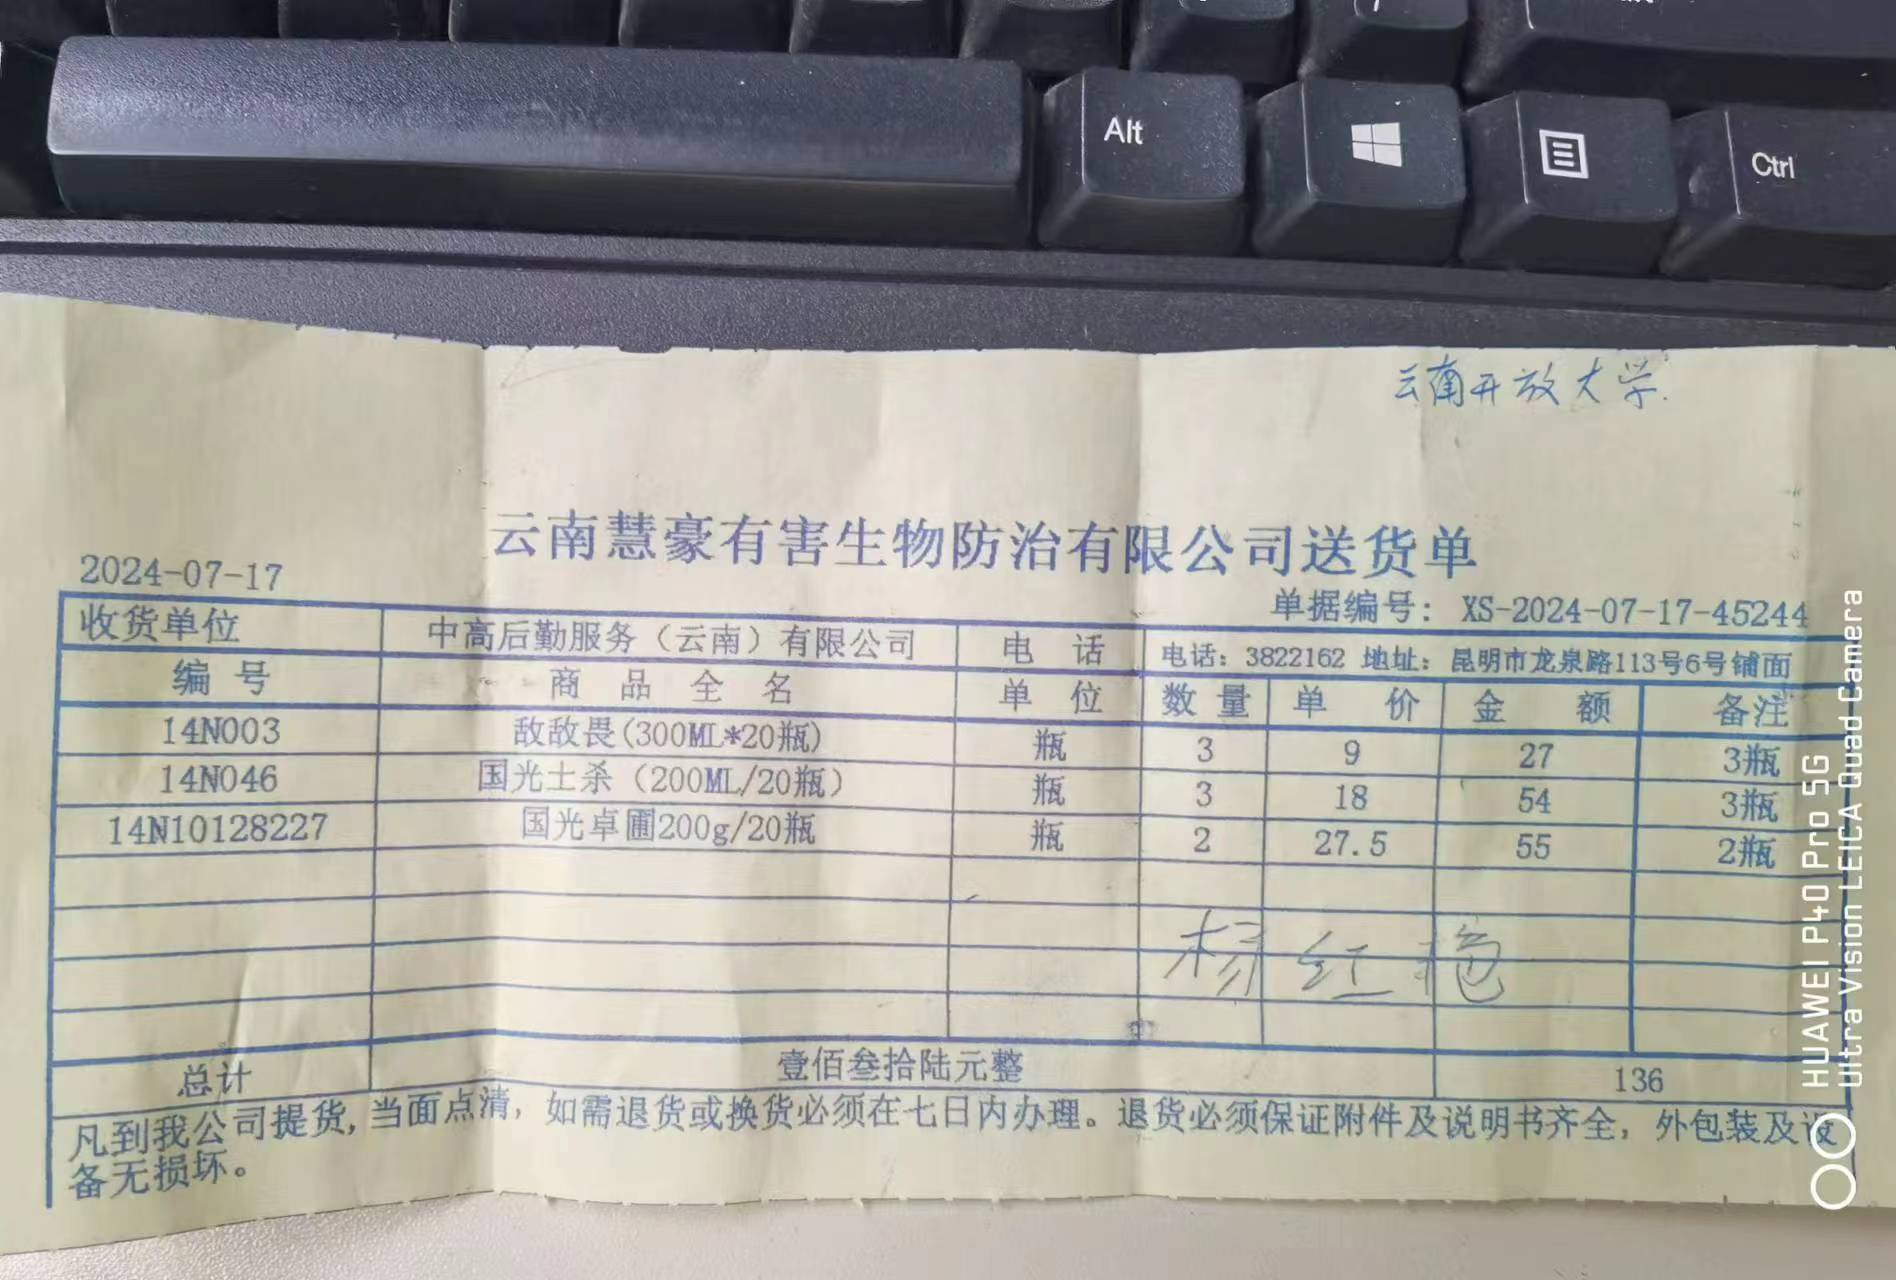 Alt
Ctrl
云南开放大学
云南慧豪有害生物防治有限公司送货单
2024-07-17
单据编号: XS-2024-07-17-45244
收货单位 中高后勤服务（云南）有限公司 电 话 电话: 3822162 地址: 昆明市龙泉路113号6号铺面
编 号 商 品 全 名 单 位 数 量 单 价 金 额 备注
14N003 敌敌畏(300ML*20瓶) 瓶 3 9 27 3瓶
14N046 国光土杀（200ML/20瓶） 瓶 3 18 54 3瓶
14N10128227 国光卓圃200g/20瓶 瓶 2 27.5 55 2瓶
杨红艳
总计 壹佰叁拾陆元整 136
凡到我公司提货, 当面点清, 如需退货或换货必须在七日内办理。退货必须保证附件及说明书齐全, 外包装及设
备无损坏。
HUAWEI P40 Pro 5G
Ultra Vision LEICA Quad Camera